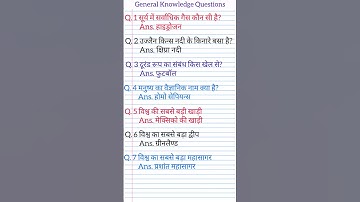 General Knowledge Questions
Q. 1 सूर्य में सर्वाधिक गैस कौन सी है?
Ans. हाइड्रोजन
Q. 2 उज्जैन किन्स नदी के किनारे बसा है?
Ans. क्षिप्रा नदी
Q. 3 डूरंड रूप का संबंध किस खेल से?
Ans. फुटबॉल
Q. 4 मनुष्य का वैज्ञानिक नाम क्या है?
Ans. होमो सेपियन्स
Q. 5 विश्व की सबसे बड़ी खाड़ी
Ans. मेक्सिको की खाड़ी
Q. 6 विश्व का सबसे बड़ा द्वीप
Ans. ग्रीनलैण्ड
Q. 7 विश्व का सबसे बड़ा महासागर
Ans. प्रशांत महासागर